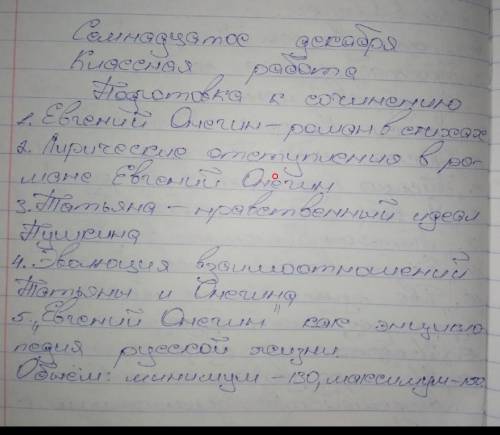 Семнадцатое декабря
Классная работа
Подготовка к сочинению
1. Евгений Онегин – роман в стихах
2. Лирические отступления в ро-
мане Евгений Онегин
3. Татьяна – нравственный идеал
Пушкина
4. Эволюция взаимоотношений
Татьяны и Онегина
5. „Евгений Онегин" как энцикло
педия русской жизни.
Объём: минимум – 130, максимум –